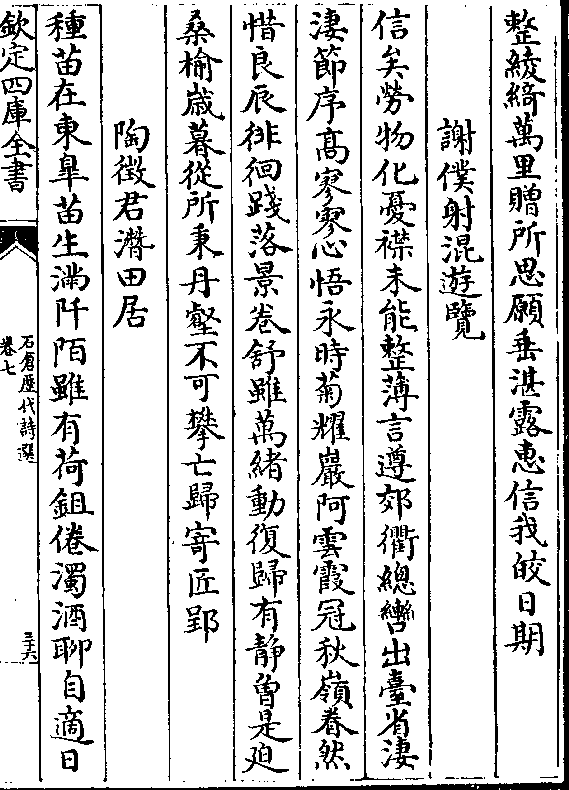 整綾綺萬里贈所思願垂湛露惠信我皎日期
謝僕射混遊覽
信矣勞物化憂襟未能整薄言遵郊衢總轡出臺省淒
淒節序髙寥寥心悟永時菊耀巖阿雲霞冠秋嶺眷然
惜良辰徘徊踐落景卷舒雖萬緒動復歸有静曾是廹
桑榆歳暮從所秉丹壑不可攀亡歸寄匠郢
陶徴君潛田居
種苗在東臯苗生滿阡陌雖有荷鉏倦濁酒聊自適日
欽定四庫全書
石倉歴代詩選
卷七
三十六